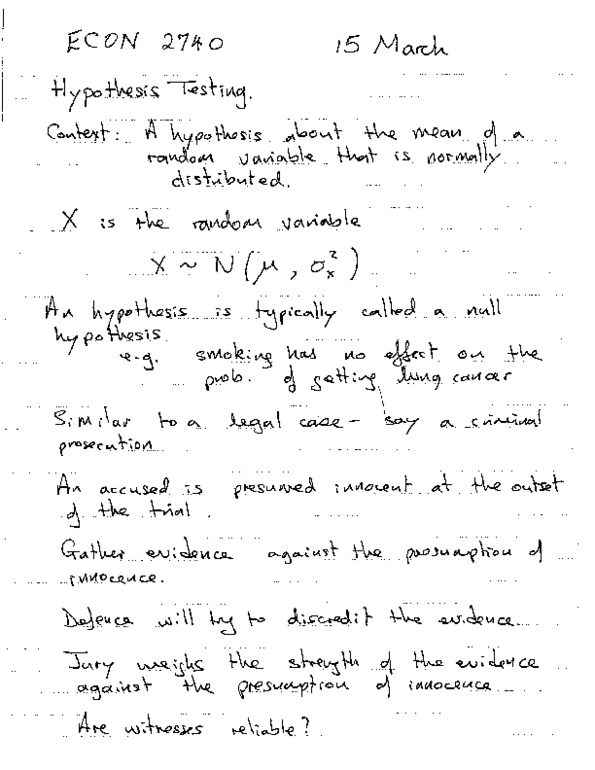 ECON 2740 15 March
Hypothesis Testing.
Context: A hypothesis about the mean of a
random variable that is normally
distributed.
X is the random variable
X ~ N(μ, σₓ²)
An hypothesis is typically called a null
hypothesis
e.g. smoking has no effect on the
prob. of getting lung cancer
Similar to a legal case - say a criminal
prosecution
An accused is presumed innocent at the outset
of the trial.
Gather evidence against the presumption of
innocence.
Defence will try to discredit the evidence.
Jury weighs the strength of the evidence
against the presumption of innocence
Are witnesses reliable?